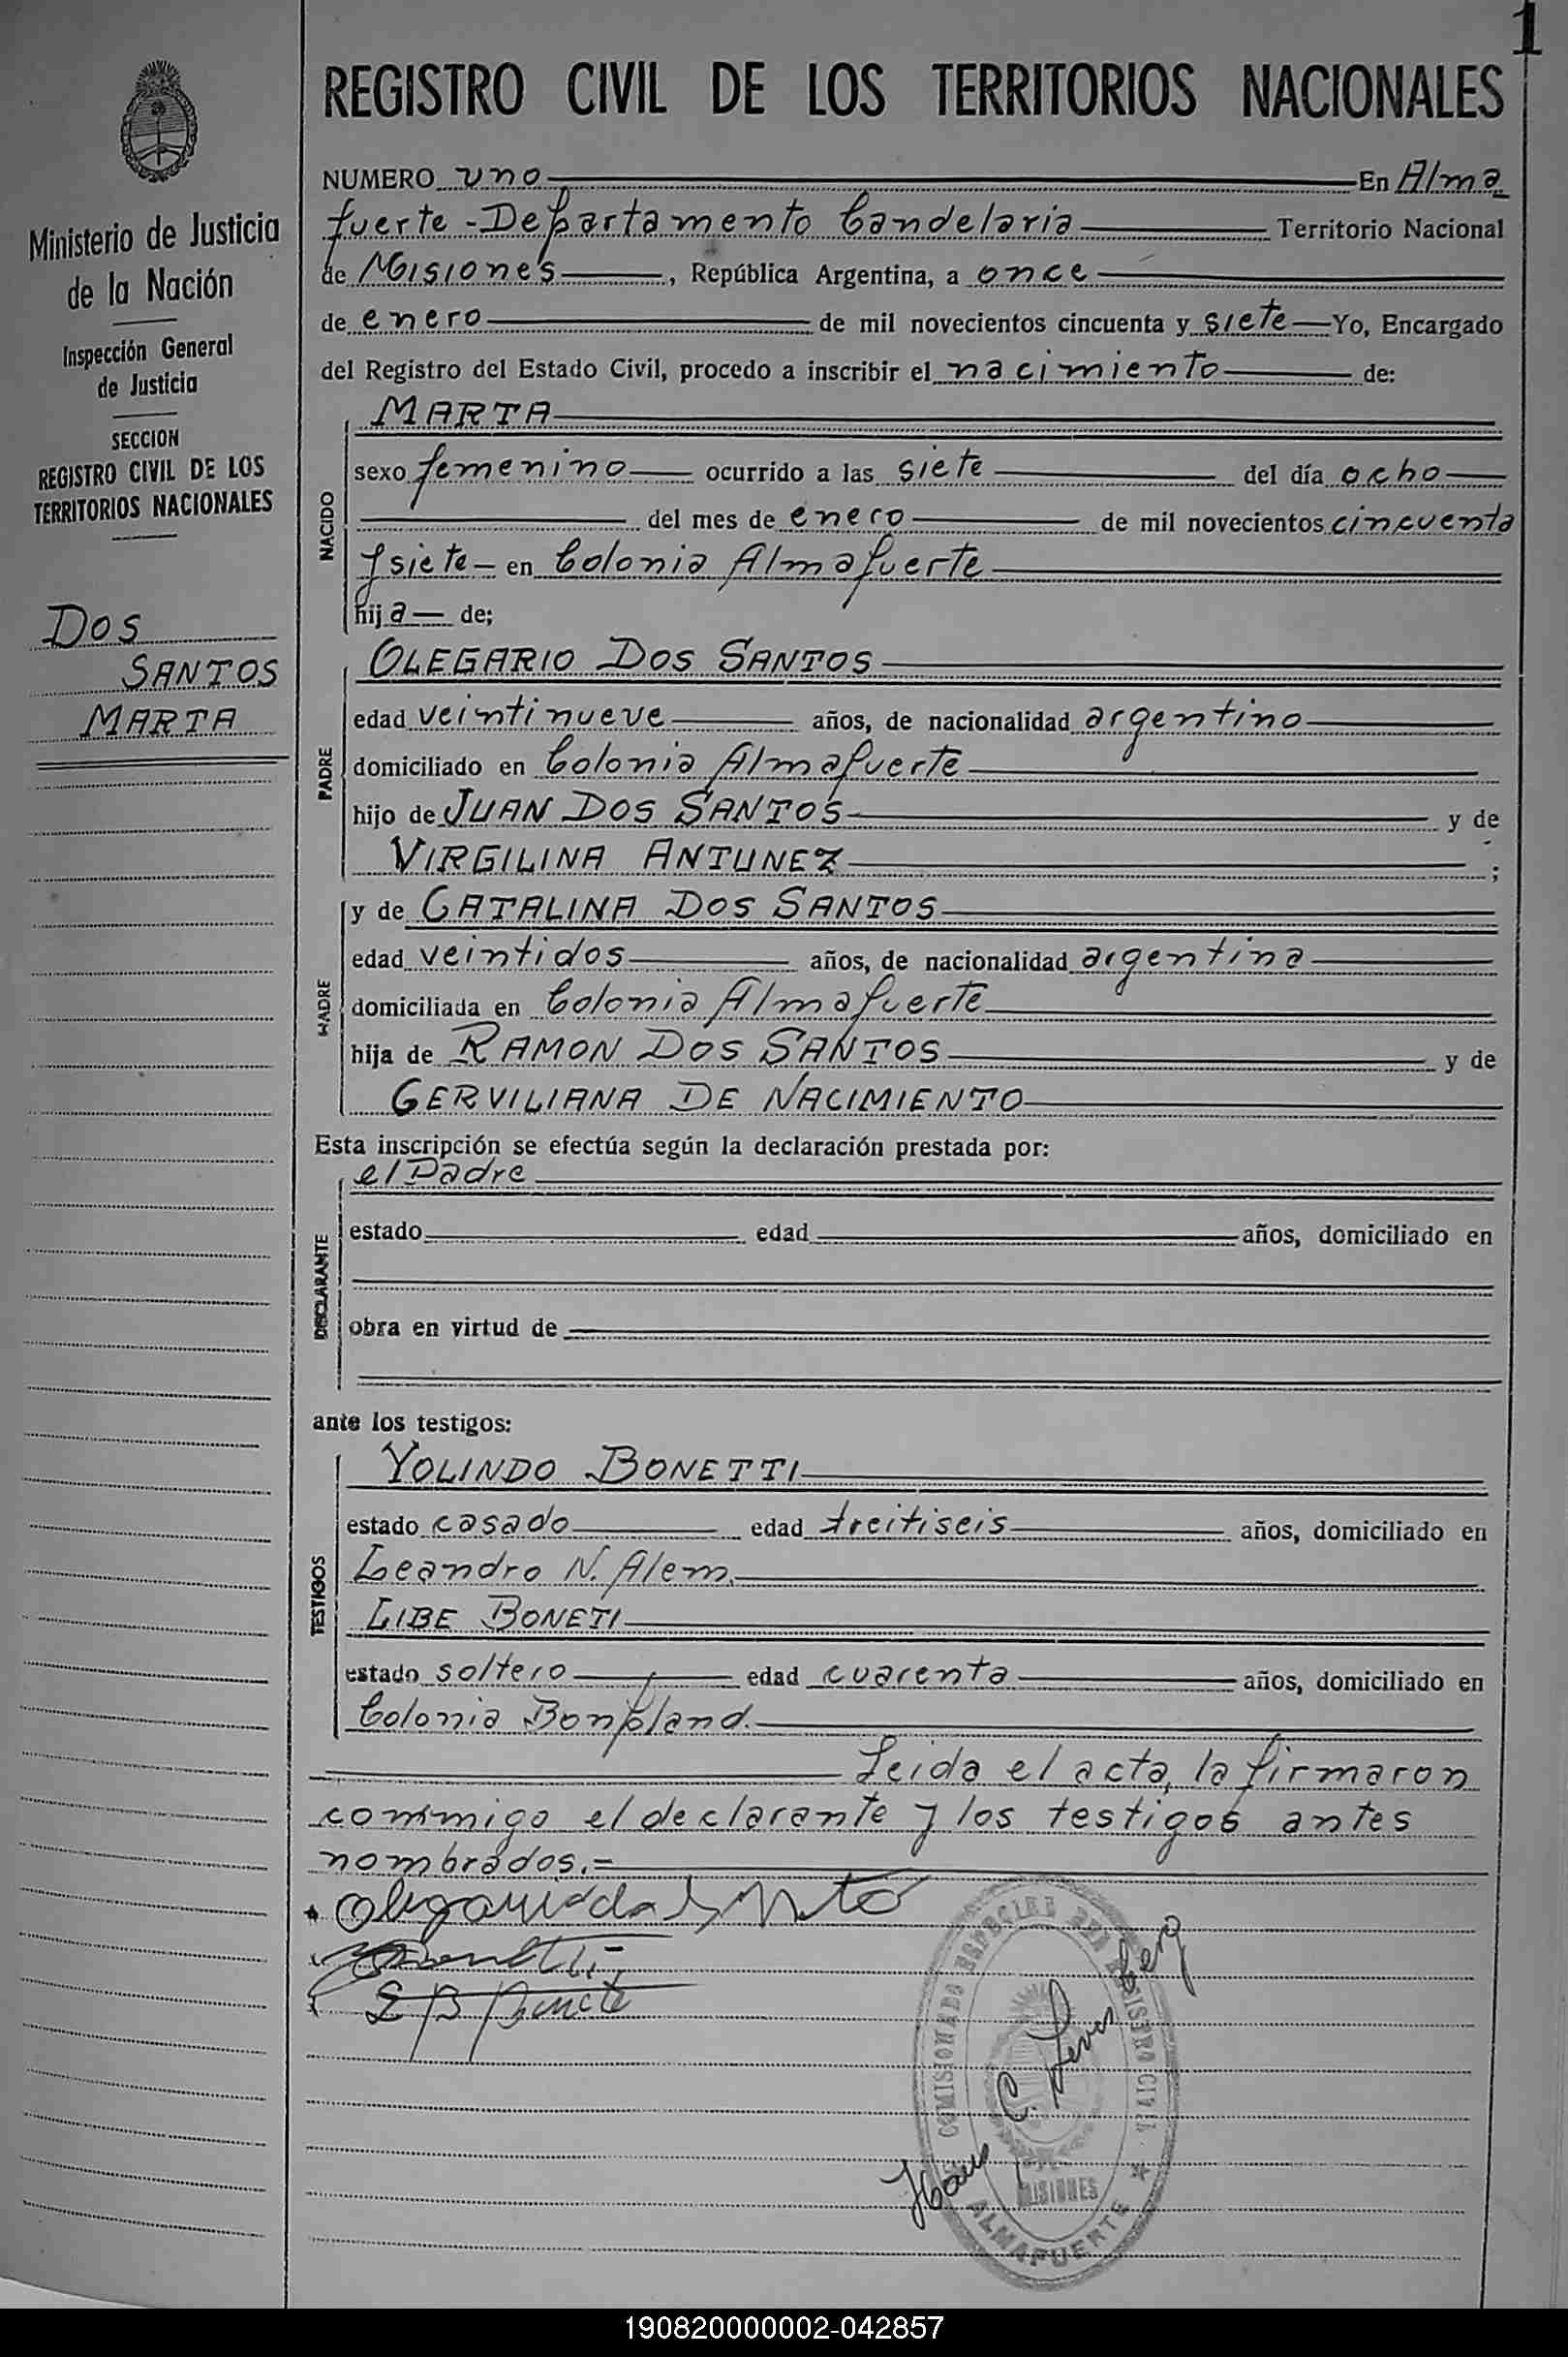 1
REGISTRO CIVIL DE LOS TERRITORIOS NACIONALES
Ministerio de Justicia
de la Nación
Inspección General
de Justicia
SECCION
REGISTRO CIVIL DE LOS
TERRITORIOS NACIONALES
DOS
SANTOS
MARTA
NUMERO uno En Alma
fuerte - Departamento Candelaria Territorio Nacional
de Misiones, República Argentina, a once
de enero de mil novecientos cincuenta y siete Yo, Encargado
del Registro del Estado Civil, procedo a inscribir el nacimiento de:
NACIDO
MARTA
sexo femenino ocurrido a las siete del día ocho
del mes de enero de mil novecientos cincuenta
y siete en Colonia Almafuerte
hija de;
PADRE
OLEGARIO DOS SANTOS
edad veintinueve años, de nacionalidad argentino
domiciliado en Colonia Almafuerte
hijo de JUAN DOS SANTOS y de
VIRGILINA ANTUNEZ ;
MADRE
y de CATALINA DOS SANTOS
edad veintidos años, de nacionalidad argentina
domiciliada en Colonia Almafuerte
hija de RAMON DOS SANTOS y de
GERVILIANA DE NACIMIENTO
Esta inscripción se efectúa según la declaración prestada por:
DECLARANTE
el Padre
estado edad años, domiciliado en
obra en virtud de
ante los testigos:
TESTIGOS
YOLINDO BONETTI
estado casado edad treitiseis años, domiciliado en
Leandro N. Alem.
LIBE BONETI
estado soltero edad cuarenta años, domiciliado en
Colonia Bonpland.
Leida el acta, la firmaron
conmigo el declarante y los testigos antes
nombrados.-
COMISIONADO ESPECIAL DEL REGISTRO CIVIL
MISIONES
ALMAFUERTE
Hans C.
190820000002-042857